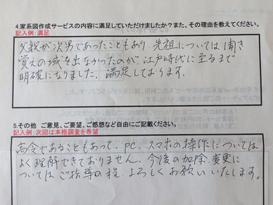 4.家系図作成サービスの内容に満足していただけましたか？また、その理由を教えてください。
記入例:満足
父親が次男であったこともあり、先祖については聞き
覚えの域を出なかったのが、江戸時代に至るまで
明確になりました。満足しております。
5.その他 ご意見、ご要望、ご感想など自由にご記載ください。
記入例:次回は本格調査を希望
高令であることもあって、PC、スマホの操作については
よく理解できておりません。今後の加除、変更に
ついてはご指導の程 よろしくお願いいたします。